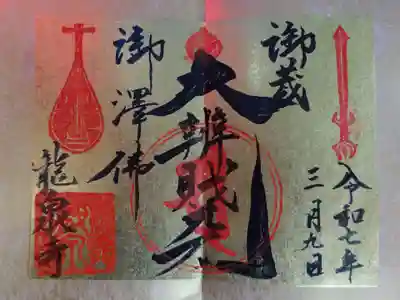 御蔵
令和七年
三月九日
大辨財天
御澤佛
龍泉寺